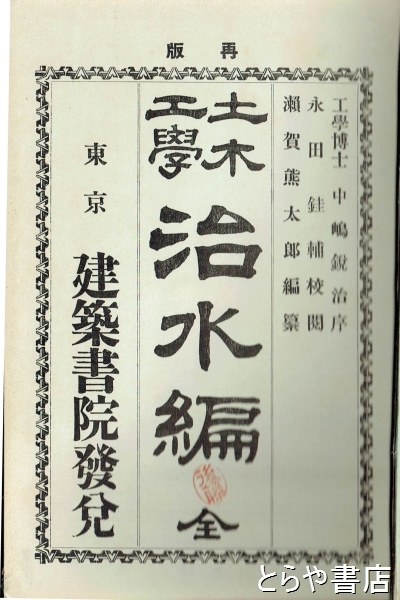 再版
工學博士 中嶋鋭治序
永田鉎輔校閲
瀬賀熊太郎編纂
土木工學
治水編
全
東京 建築書院發兌
とらや書店